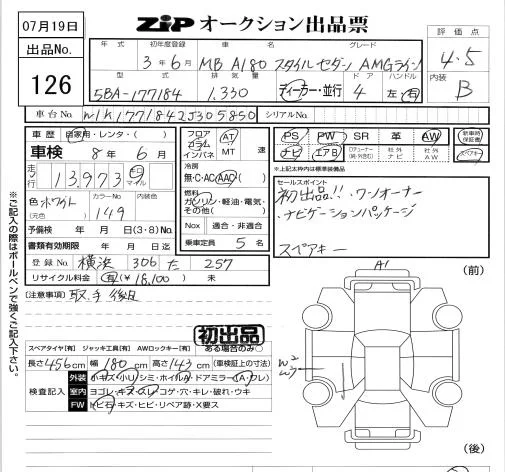 07月19日
ZiP オークション出品票
出品No.
126
年式 初年度登録 車名 グレード
3年6月 MB A180 スタイルセダン AMGライン
型式 排気量 ドア ハンドル
5BA-177184 1,330 ディーラー・並行 4 左・右
評価点
4.5
内装
B
車台No. W1K1771842J305850 シリアルNo.
車歴 自家用・レンタ・( )
車検 8年6月
走行 13,973 キロ マイル
色 ホワイト カラーNo. 149 内装色
(元色)
予備検 年 月 日(3・8)No.
書類有効期限 年 月 日迄
登録No. 横浜 306 た 257
リサイクル料金 有(¥18,100) 未
フロア コラム インパネ AT MT 速
冷房
無・C・AC・AAC
燃料
ガソリン・軽油・電気・その他( )
Nox 適合・非適合
乗車定員 5名
PS PW SR 革 AW 新車時保証書
ナビ エアB ナビ AW
※上記太枠内は標準装備品
セールスポイント
初出品!! ワンオーナー
ナビゲーションパッケージ
スペアキー
[注意事項] 取、手 後日
初出品
スペアタイヤ[有] ジャッキ工具[有] AWロックキー[有] ある場合のみ○
長さ456cm 幅180cm 高さ143cm (車検証上の寸法)
検査記入
外装 小キズ・小U・シミ・ホイルA・ドアミラー(A・ワレ)
室内 ヨゴレ・キズ・スレ・コゲ・穴・キレ・破れ・ウキ
FW トビ石・キズ・ヒビ・リペア跡・X要ス
※ご記入の際はボールペンで強くご記入下さい。
A1
(前)
W2
W3
(後)